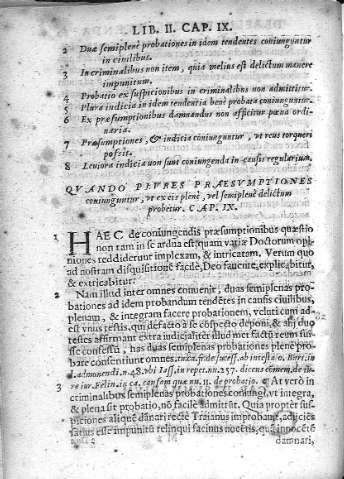 LIB. II. CAP. IX.
2 Duæ semiplenè probationes in idem tendentes coniunguntur
in ciuilibus.
3 In criminalibus non item, quia melius est delictum manere
impunitum.
4 Probatio ex suspicionibus in criminalibus non admittitur.
5 Plura indicia in idem tendentia benè probata coniunguntur.
6 Ex præsumptionibus damnandus non afficitur pœna ordi-
naria.
7 Præsumptiones, & indicia coniunguntur, vt reus torqueri
possit.
8 Leuiora indicia non sunt coniungenda in causis regularium.
QVANDO PLVRES PRAESVMPTIONES
coniunguntur, vt ex eis plenè, vel semiplenè delictum
probetur. CAP. IX.
1 HAEC de coniungendis præsumptionibus quæstio
non tam in se ardua est quam variæ Doctorum opi-
niones reddiderunt implexam, & intricatam. Verum quo
ad nostram disquisitionē facilè, Deo fauente, explicabitur,
& extricabitur:
2 Nam illud inter omnes conuenit, duas semiplenas pro-
bationes ad idem probandum tendētes in causis ciuilibus,
plenam, & integram facere probationem, veluti cum ad-
est vnus testis, qui de facto à se conspecto deponit, & alij duo
testes affirmant extra iudicialiter illud met factū reum fuis-
se confessū, has duas semiplenas probationes plenè pro-
bare consentiunt omnes
3 At verò in
criminalibus semiplenas probationes coniungi, vt integra,
& plena sit probatio, nō facilè admittūt. Quia propter sus-
piciones aliquē dānari rectè Traianus improbauit, adijciēs
satius esse impunitū relinqui facinus nocētis, quā innocētē
damnari,